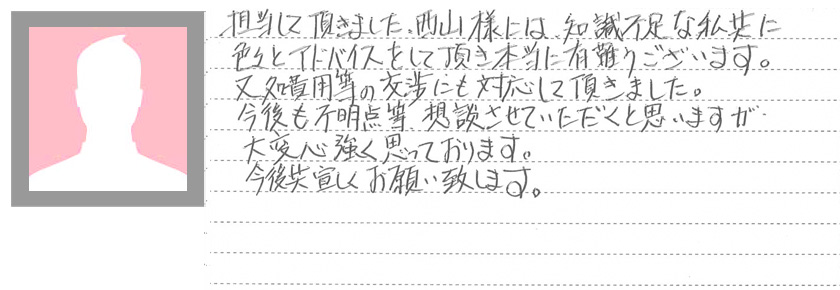 担当して頂きました、西山様には、知識不足な私共に
色々とアドバイスをして頂き本当に有難うございます。
又、諸費用等の交渉にも対応して頂きました。
今後も不明点等、想談させていただくと思いますが
大変心強く思っております。
今後共宜しくお願い致します。